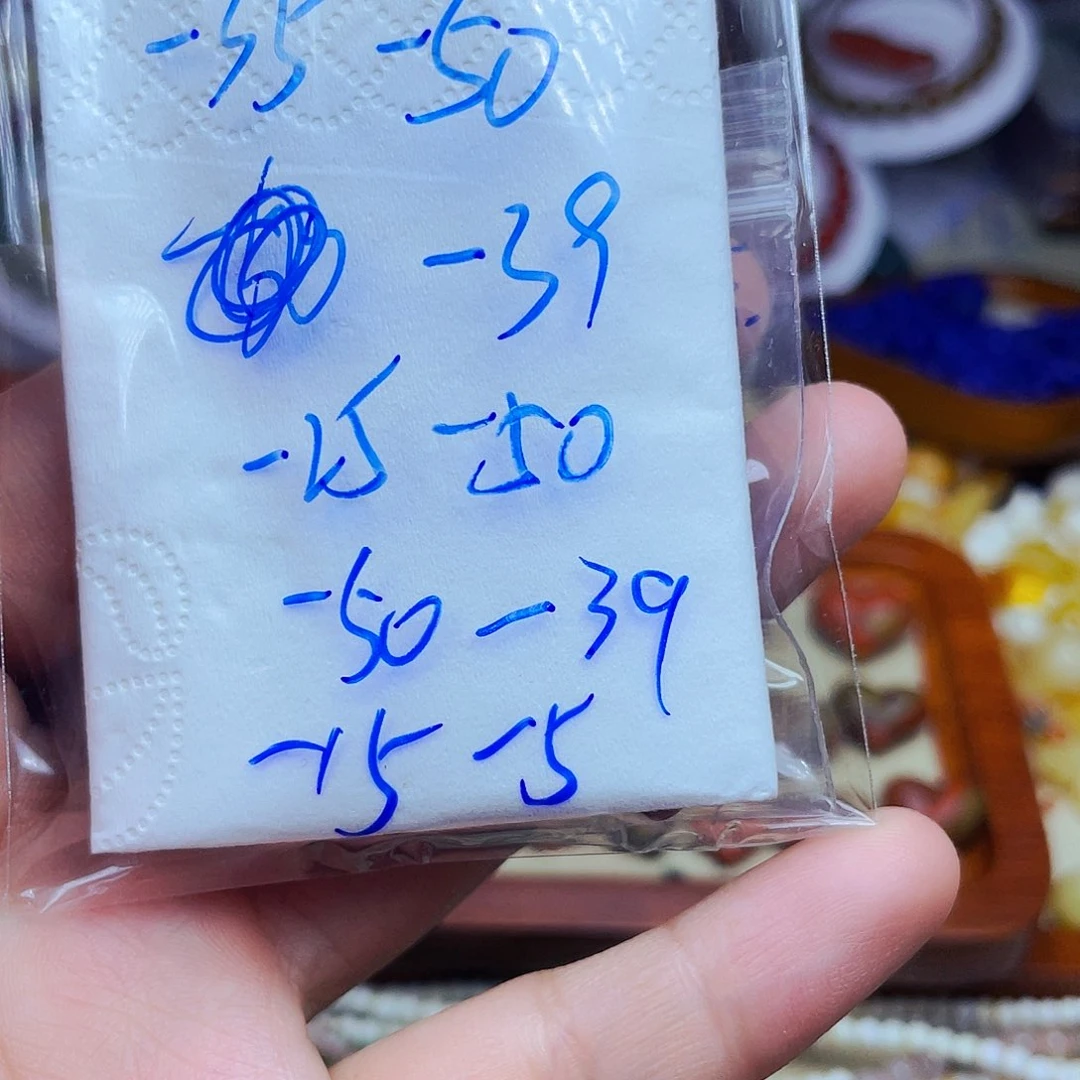 -35 -50
-39
-15 -50
-50 -39
-15 -5